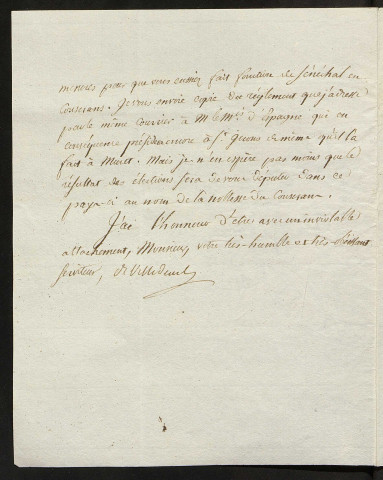 mesures pour que vous eussiez fait fonction de Sénéchal en
Couserans. Je vous envoie copie du réglement que j'adresse
par le même Courier à M. le M.is d'Espagne qui en
conséquence présidera encore à S.t Girons de même qu'il l'a
fait à Muret. Mais je n'en espère pas moins que le
résultat des élections sera de vous députer dans ce
pays-ci au nom de la noblesse du Couserans.
J'ai l'honneur d'être avec un inviolable
attachement, Monsieur, votre très-humble et très-obéissant
serviteur, de Villedeuil